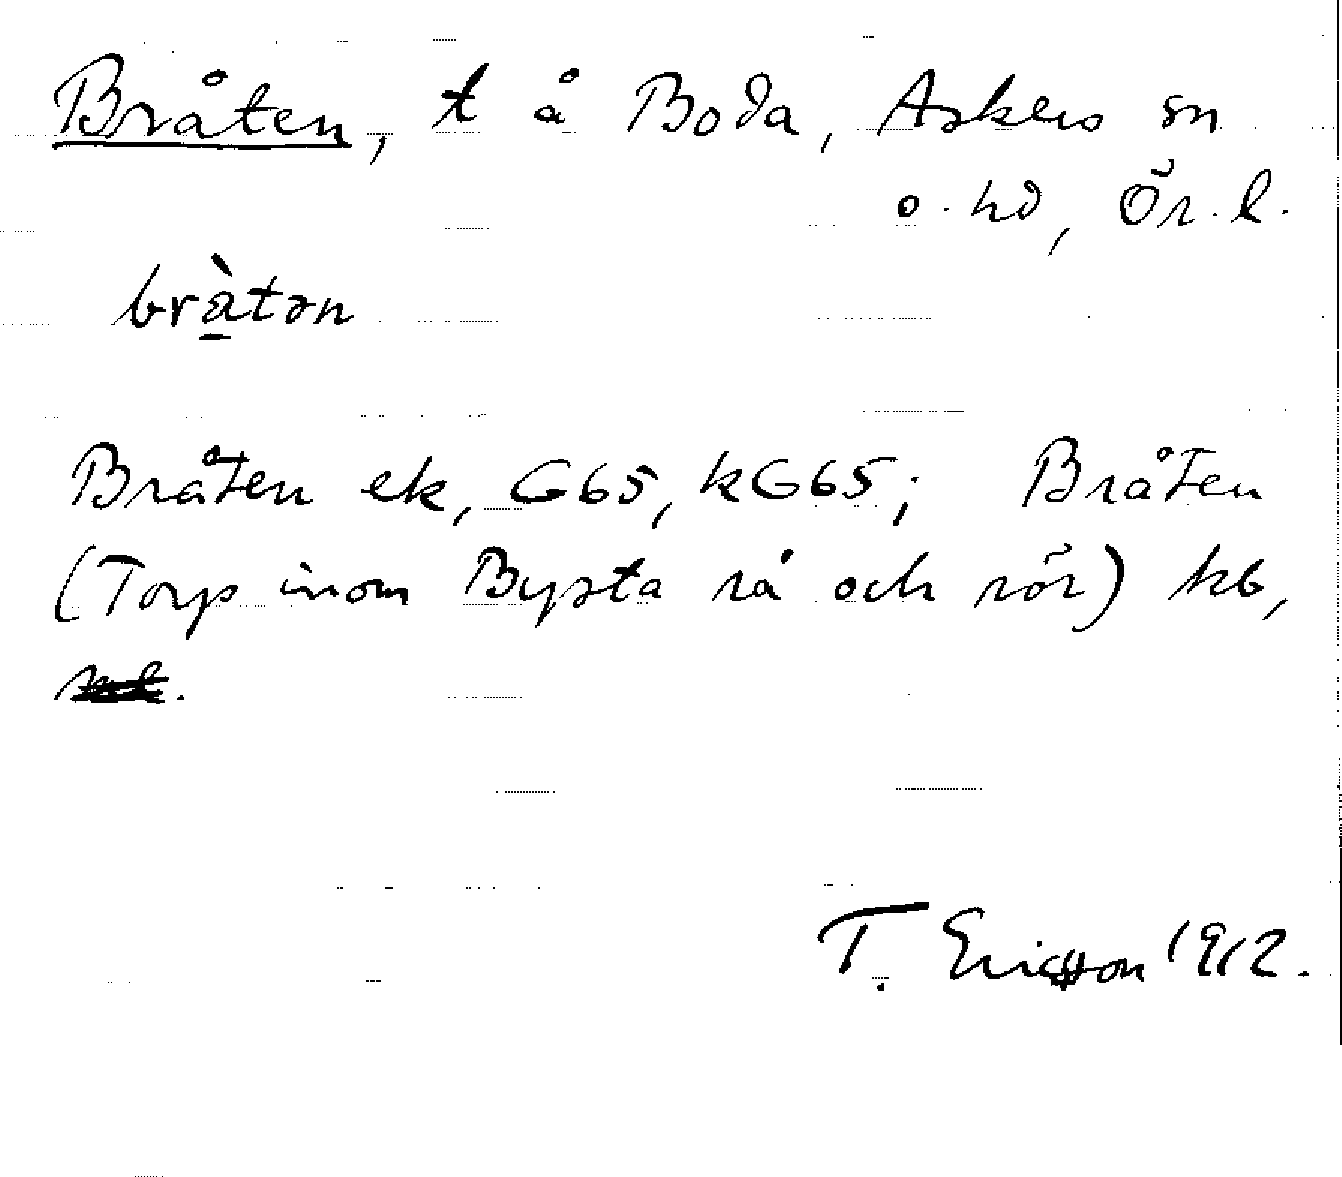 Bråten, t å Boda, Askers sn
o. hd, Ör. l.
bràtən
Bråten ek, G65, kG65; Bråten
(Torp inom Bysta rå och rör) kb,
T. Ericsson 1912.